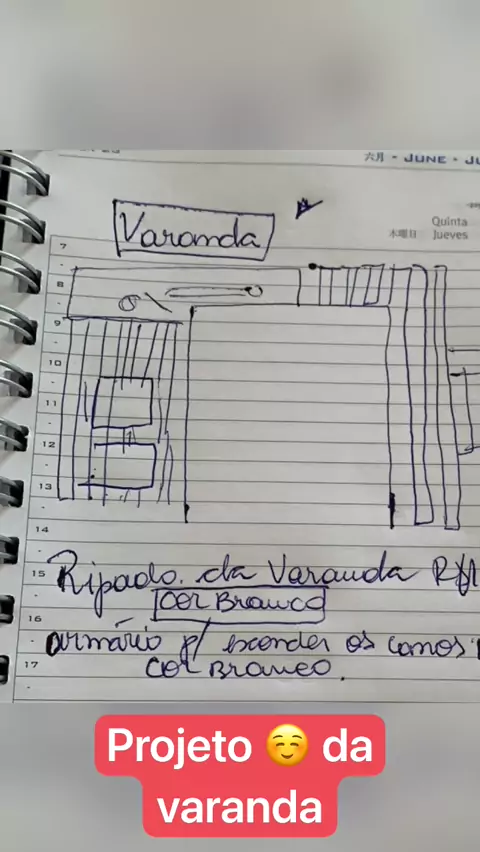 六月 • JUNE • JU
Quinta
木曜日 Jueves
Varanda
7
8
9
10
11
12
13
14
15 Ripado da Varanda
cor Branco
16
armário p/ esconder os canos
17 cor Branco.
Projeto ☺️ da
varanda